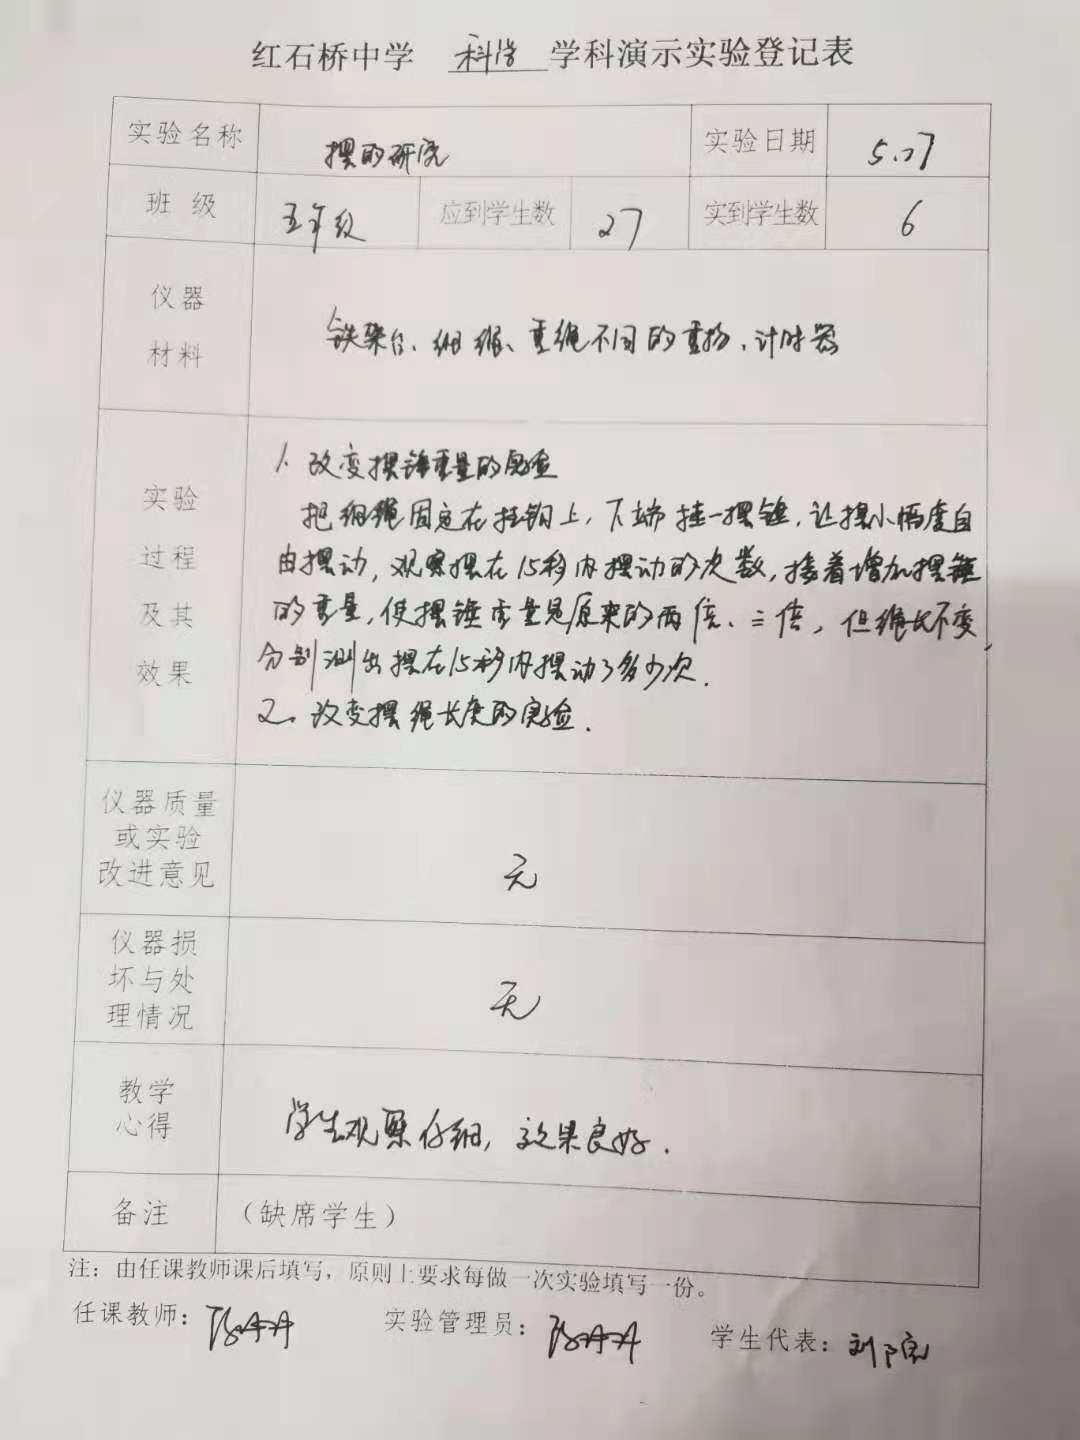 红石桥中学 科学 学科演示实验登记表
实验名称 摆的研究 实验日期 5.27
班 级 五年级 应到学生数 27 实到学生数 6
仪器
材料
铁架台、细绳、重绳不同的重物、计时器
实验
过程
及其
效果
1、改变摆锤重量的实验
把细绳固定在挂钩上,下端挂一摆锤,让摆小幅度自
由摆动,观察摆在15秒内摆动的次数,接着增加摆锤
的重量,使摆锤重量是原来的两倍、三倍,但绳长不变,
分别测出摆在15秒内摆动了多少次.
2、改变摆绳长度的实验.
仪器质量
或实验
改进意见
无
仪器损
坏与处
理情况
无
教学
心得
学生观察仔细,效果良好.
备注 (缺席学生)
注:由任课教师课后填写,原则上要求每做一次实验填写一份。
任课教师: 实验管理员: 学生代表: